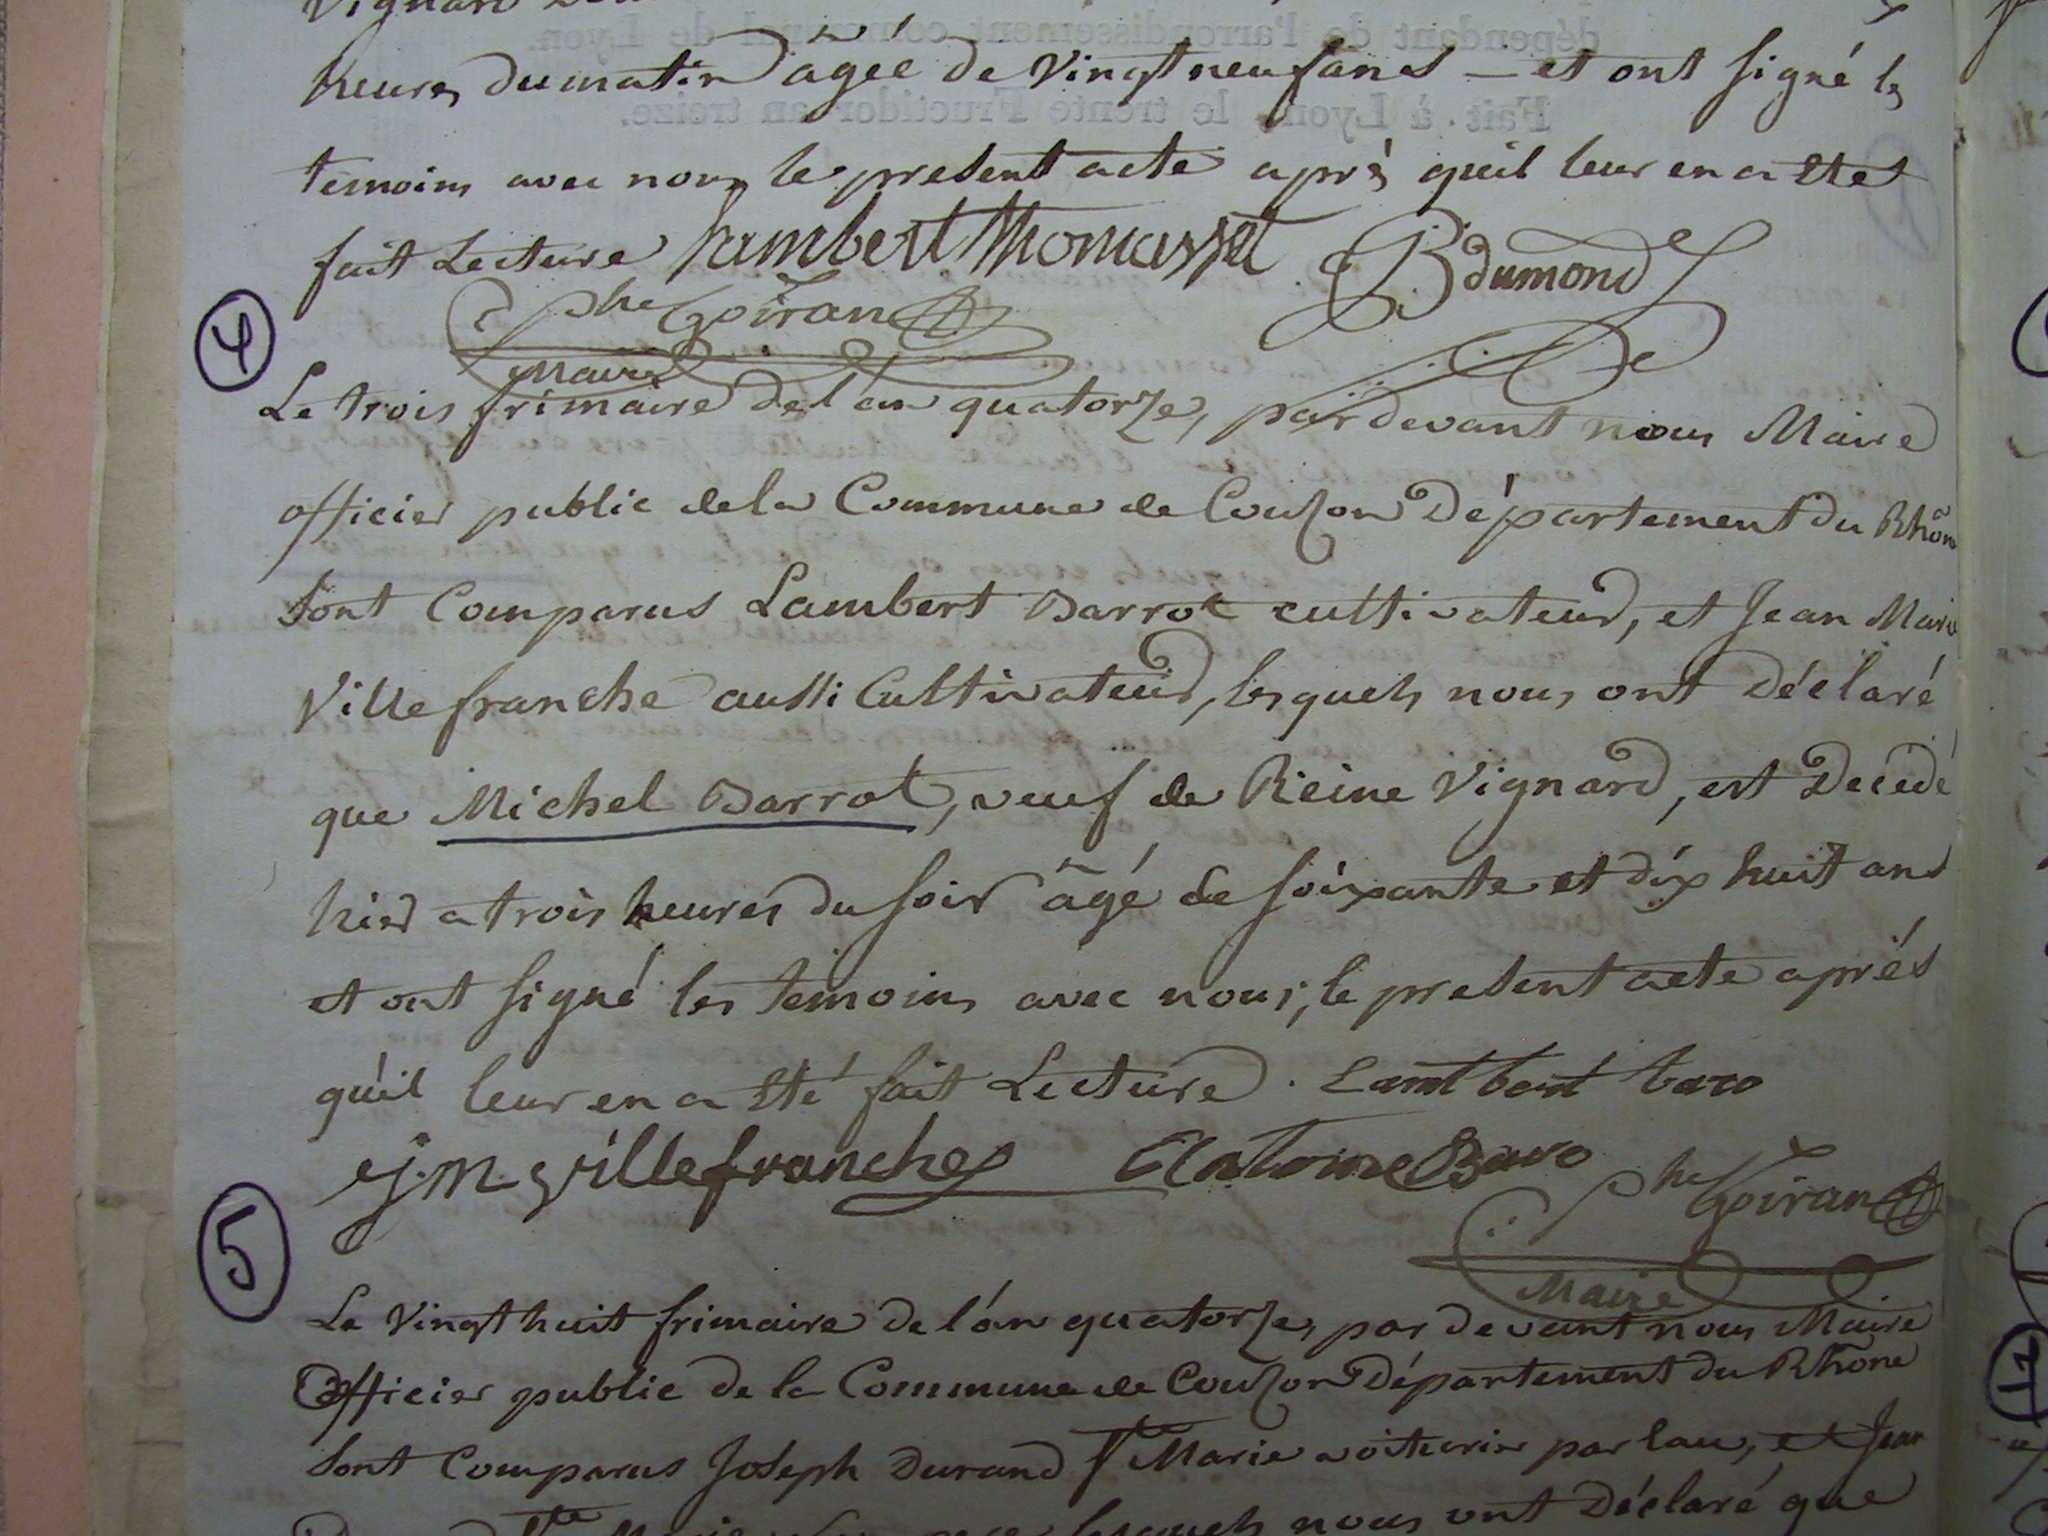 Vignard
heures du matin âgée de Vingt neuf ans — et ont signé les
temoins avec nous le present acte après qu'il leur en a été
fait Lecture Lambert Thomasset B dumond
phe Goiran
Maire
4
Le trois frimaire de l'an quatorze, par devant nous Maire
officier public de la Commune de Couzon Département du Rhône
Sont Comparus Lambert Barrot cultivateur, et Jean Marie
Villefranche aussi Cultivateur, lesquels nous ont Déclaré
que Michel Barrot, veuf de Reine Vignard, est Décédé
hier a trois heures du soir âgé de soixante et dix huit ans
et ont signé les temoins avec nous, le present acte aprés
qu'il leur en a été fait Lecture. Lambert baro
J. M. Villefranche Antoine Baro
phe Goiran
Maire
5
Le Vingt huit frimaire de l'an quatorze, par devant nous Maire
Officier public de la Commune de Couzon Département du Rhône
Sont Comparus Joseph Durand Ste Marie voiturier par eau, et Jean
lesquels nous ont Déclaré que
12
dépendant de l'arrondissement communal de Lyon.
Fait à Lyon, le trente Fructidor an treize.